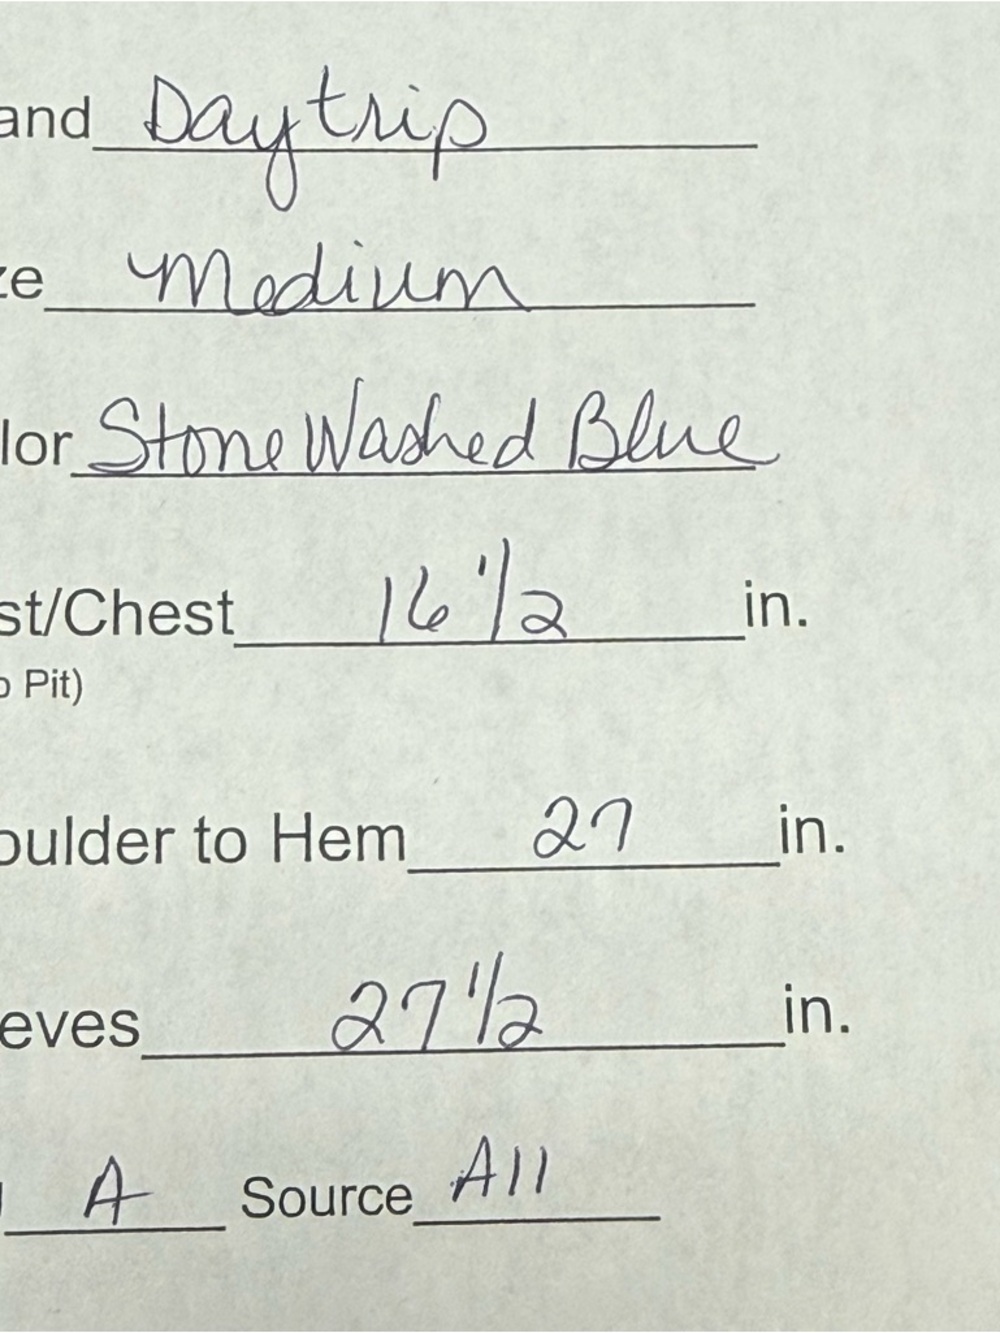 and Daytrip
ze Medium
lor Stone Washed Blue
st/Chest 16 1/2 in.
o Pit)
oulder to Hem 27 in.
eeves 27 1/2 in.
A Source A11